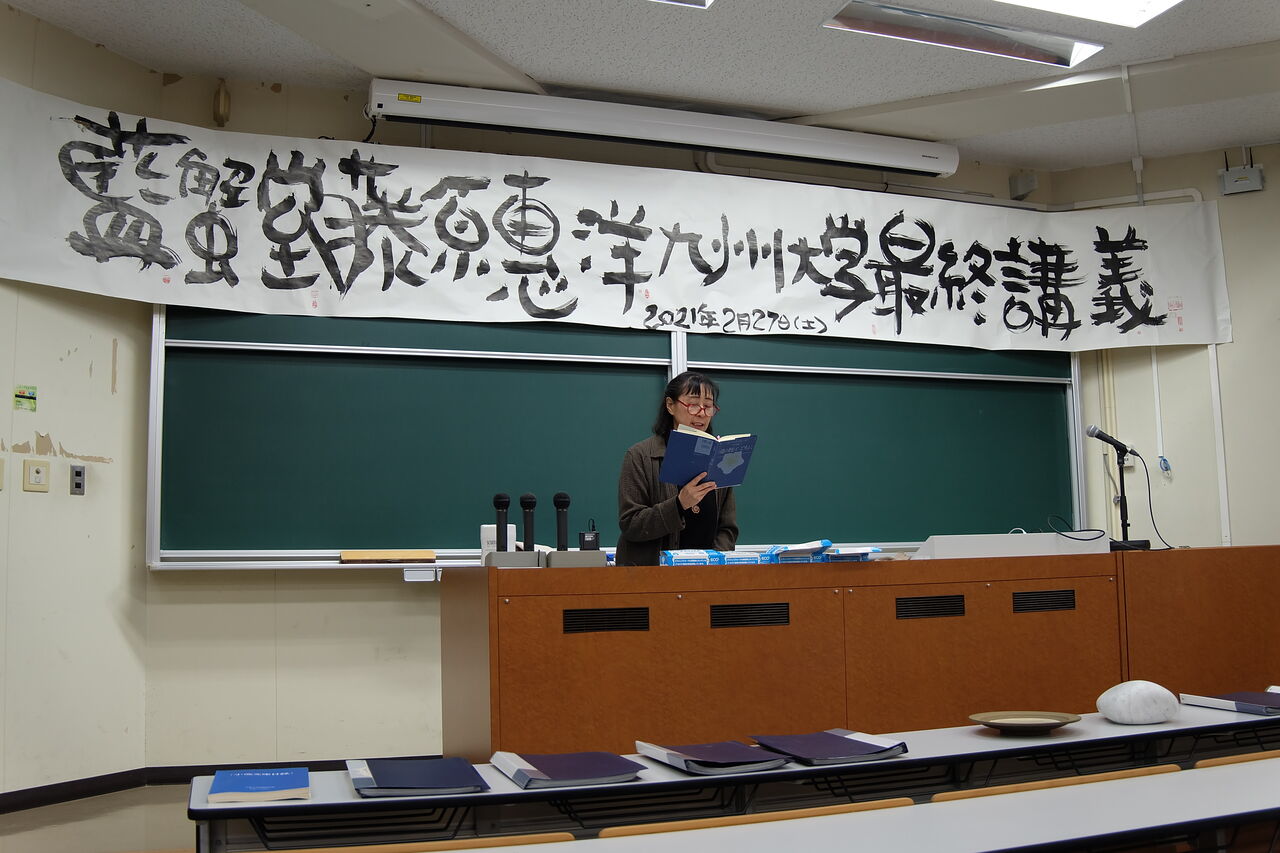 藍蟹堂藤原惠洋九州大学最終講義
2021年2月27日(土)